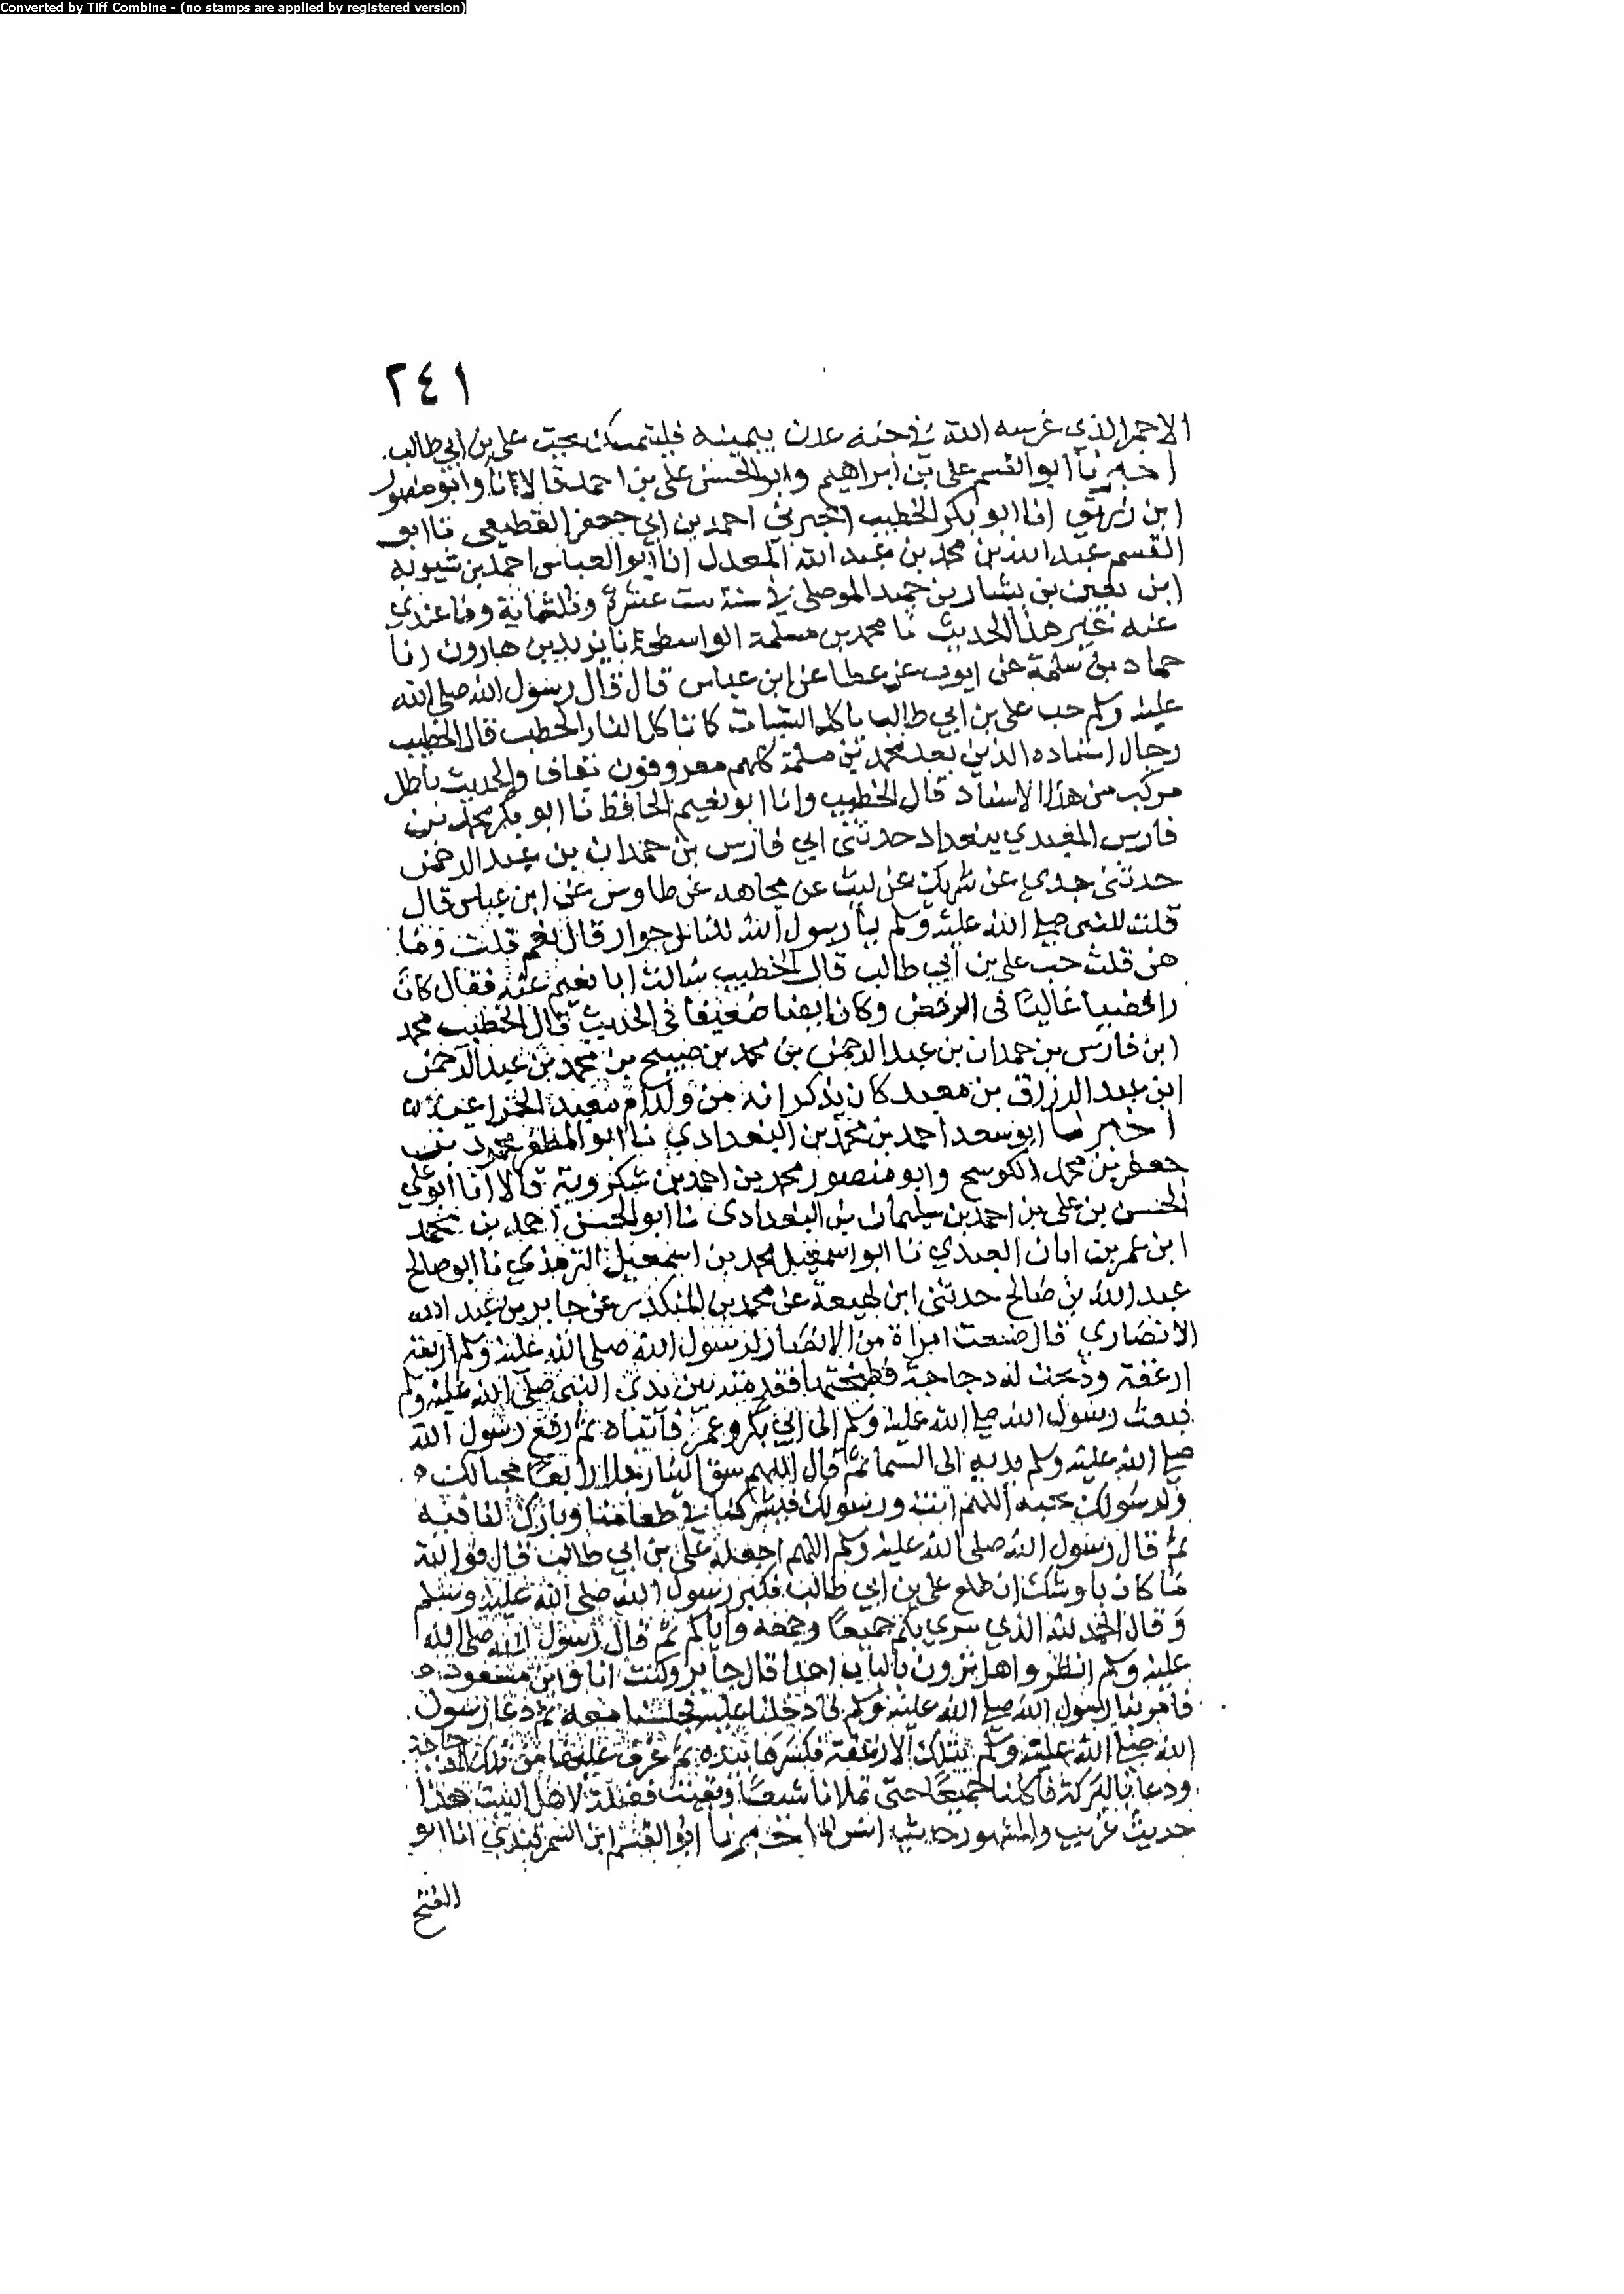 Converted by Tiff Combine - (no stamps are applied by registered version)
٢٤١
الاحمر الذي غرسه الله في جنة عدن بيمينه فليتمسك بحب علي بن ابي طالب.
اخبرنا ابو القسم علي بن ابراهيم وابو الحسن علي بن احمد قالا نا وابو منصور
ابن زريق انا ابو بكر الخطيب اخبرني احمد بن ابي جعفر القطيعي نا ابو
القسم عبد الله بن محمد بن عبد الله المعدل انا ابو العباس احمد بن شبويه
ابن بن بشار بن حميد الموصلي سنة ست عشرة وثلثماية وما عندي
عنه غير هذا الحديث نا محمد بن مسلمة الواسطي نا يزيد بن هارون نا
حماد بن سلمة عن ايوب عن عطا عن ابن عباس قال قال رسول الله صلى الله
عليه وسلم حب علي بن ابي طالب ياكل السيات كما تاكل النار الحطب قال الخطيب
رجال اسناده الذين بعد محمد بن مسلمة كلهم معروفون ثقات والحديث باطل
مركب من هذا الاسناد قال الخطيب وانا ابو نعيم الحافظ نا ابو بكر محمد بن
فارس المعبدي ببغداد حدثني ابي فارس بن حمدان بن عبد الرحمن
حدثني جدي عن شريك عن ليث عن مجاهد عن طاوس عن ابن عباس قال
قلت للنبي صلى الله عليه وسلم يا رسول الله للنار جواز قال نعم قلت وما
هي قلت حب علي بن ابي طالب قال الخطيب سالت ابا نعيم عنه فقال كان
رافضيا غاليا في الرفض وكان ايضا ضعيفا في الحديث قال الخطيب محمد
ابن فارس بن حمدان بن عبد الرحمن بن محمد بن صبيح بن محمد بن عبد الرحمن
ابن عبد الرزاق بن معبد كان يذكر انه من ولد ام معبد الخزاعية
اخبرنا ابو سعد احمد بن محمد بن البغدادي نا ابو المظفر محمود بن
جعفر بن محمد الكوسج وابو منصور محمد بن احمد بن شكرويه قالا انا ابو علي
الحسن بن علي بن احمد بن سليمان بن البغدادي نا ابو الحسن احمد بن محمد
ابن عمر بن ابان العبدي نا ابو اسمعيل محمد بن اسمعيل الترمذي نا ابو صالح
عبد الله بن صالح حدثني ابن لهيعة عن محمد بن المنكدر عن جابر بن عبد الله
الانصاري قال صنعت امراة من الانصار لرسول الله صلى الله عليه وسلم اربعة
ارغفة وذبحت له دجاجة فطبختها فقدمته بين يدي النبي صلى الله عليه وسلم
فبعث رسول الله صلى الله عليه وسلم الى ابي بكر وعمر فأتياه ثم رفع رسول الله
صلى الله عليه وسلم يديه الى السما ثم قال اللهم سق الينا رجلا رابعا محبا لك
ولرسولك تحبه اللهم انت ورسولك فيشركنا في طعامنا وبارك لنا فيه
ثم قال رسول الله صلى الله عليه وسلم اللهم اجعله علي بن ابي طالب قال فوالله
ما كان باوشك ان طلع علي بن ابي طالب فكبر رسول الله صلى الله عليه وسلم
وقال الحمد لله الذي سرى بكم جميعا وجمعه واياكم ثم قال رسول الله صلى الله
عليه وسلم انظروا هل ترون بالباب احدا قال جابر وكنت انا وابن مسعود
فامر بنا رسول الله صلى الله عليه وسلم فادخلنا عليه فجلسنا معه ثم دعا رسول
الله صلى الله عليه وسلم بتلك الارغفة فكسرها بيده ثم غرف عليها من تلك الدجاجة
ودعا بالبركة فاكلنا جميعا حتى تملانا شبعا وبقيت فضلة لاهل البيت هذا
حديث غريب والمشهور حديث انس اخبرنا ابو القسم ابن السمرقندي انا ابو
الفتح